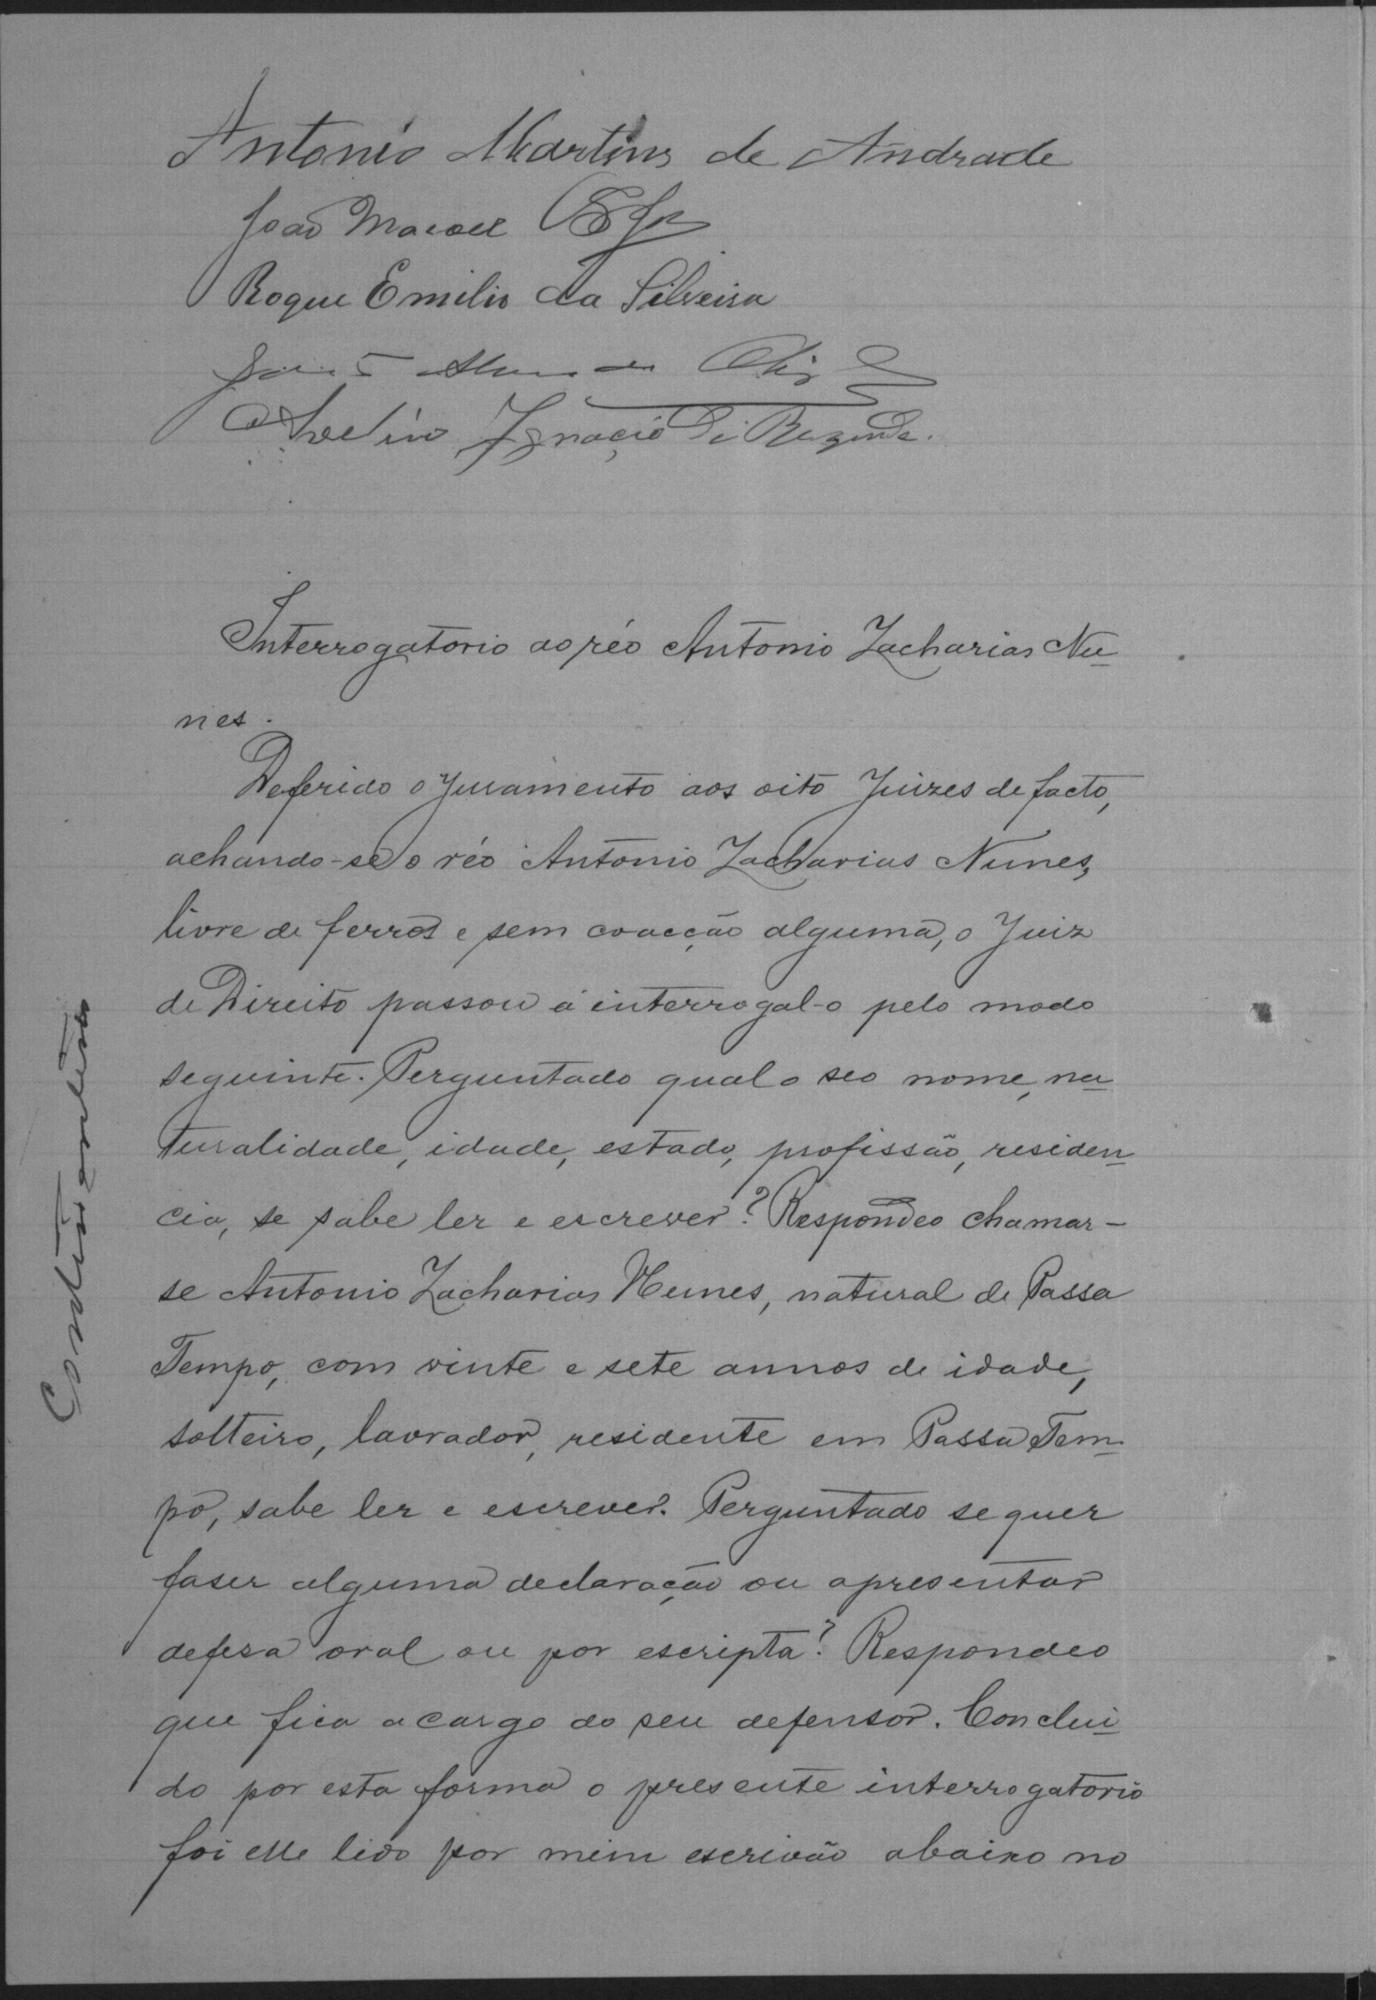 Antonio Martins de Andrade
João Manoel
Roque Emilio da Silveira
Avelino Ignacio de Rezende.
Interrogatorio ao réo Antonio Zacharias Nu-
nes.
Deferido o juramento aos oito Juizes de facto,
achando-se o réo Antonio Zacharias Nunes,
livre de ferros e sem coacção alguma, o Juiz
de Direito passou á interrogal-o pelo modo
seguinte. Perguntado qual o seo nome, na-
turalidade, idade, estado, profissão, residen-
cia, se sabe ler e escrever? Respondeo chamar-
se Antonio Zacharias Nunes, natural de Passa
Tempo, com vinte e sete annos de idade,
solteiro, lavrador, residente em Passa Tem-
po, sabe ler e escrever. Perguntado se quer
faser alguma declaração ou apresentar
defesa oral ou por escripta? Respondeo
que fica a cargo do seu defensor. Conclui-
do por esta forma o presente interrogatorio
foi elle lido por mim escrivão abaixo no